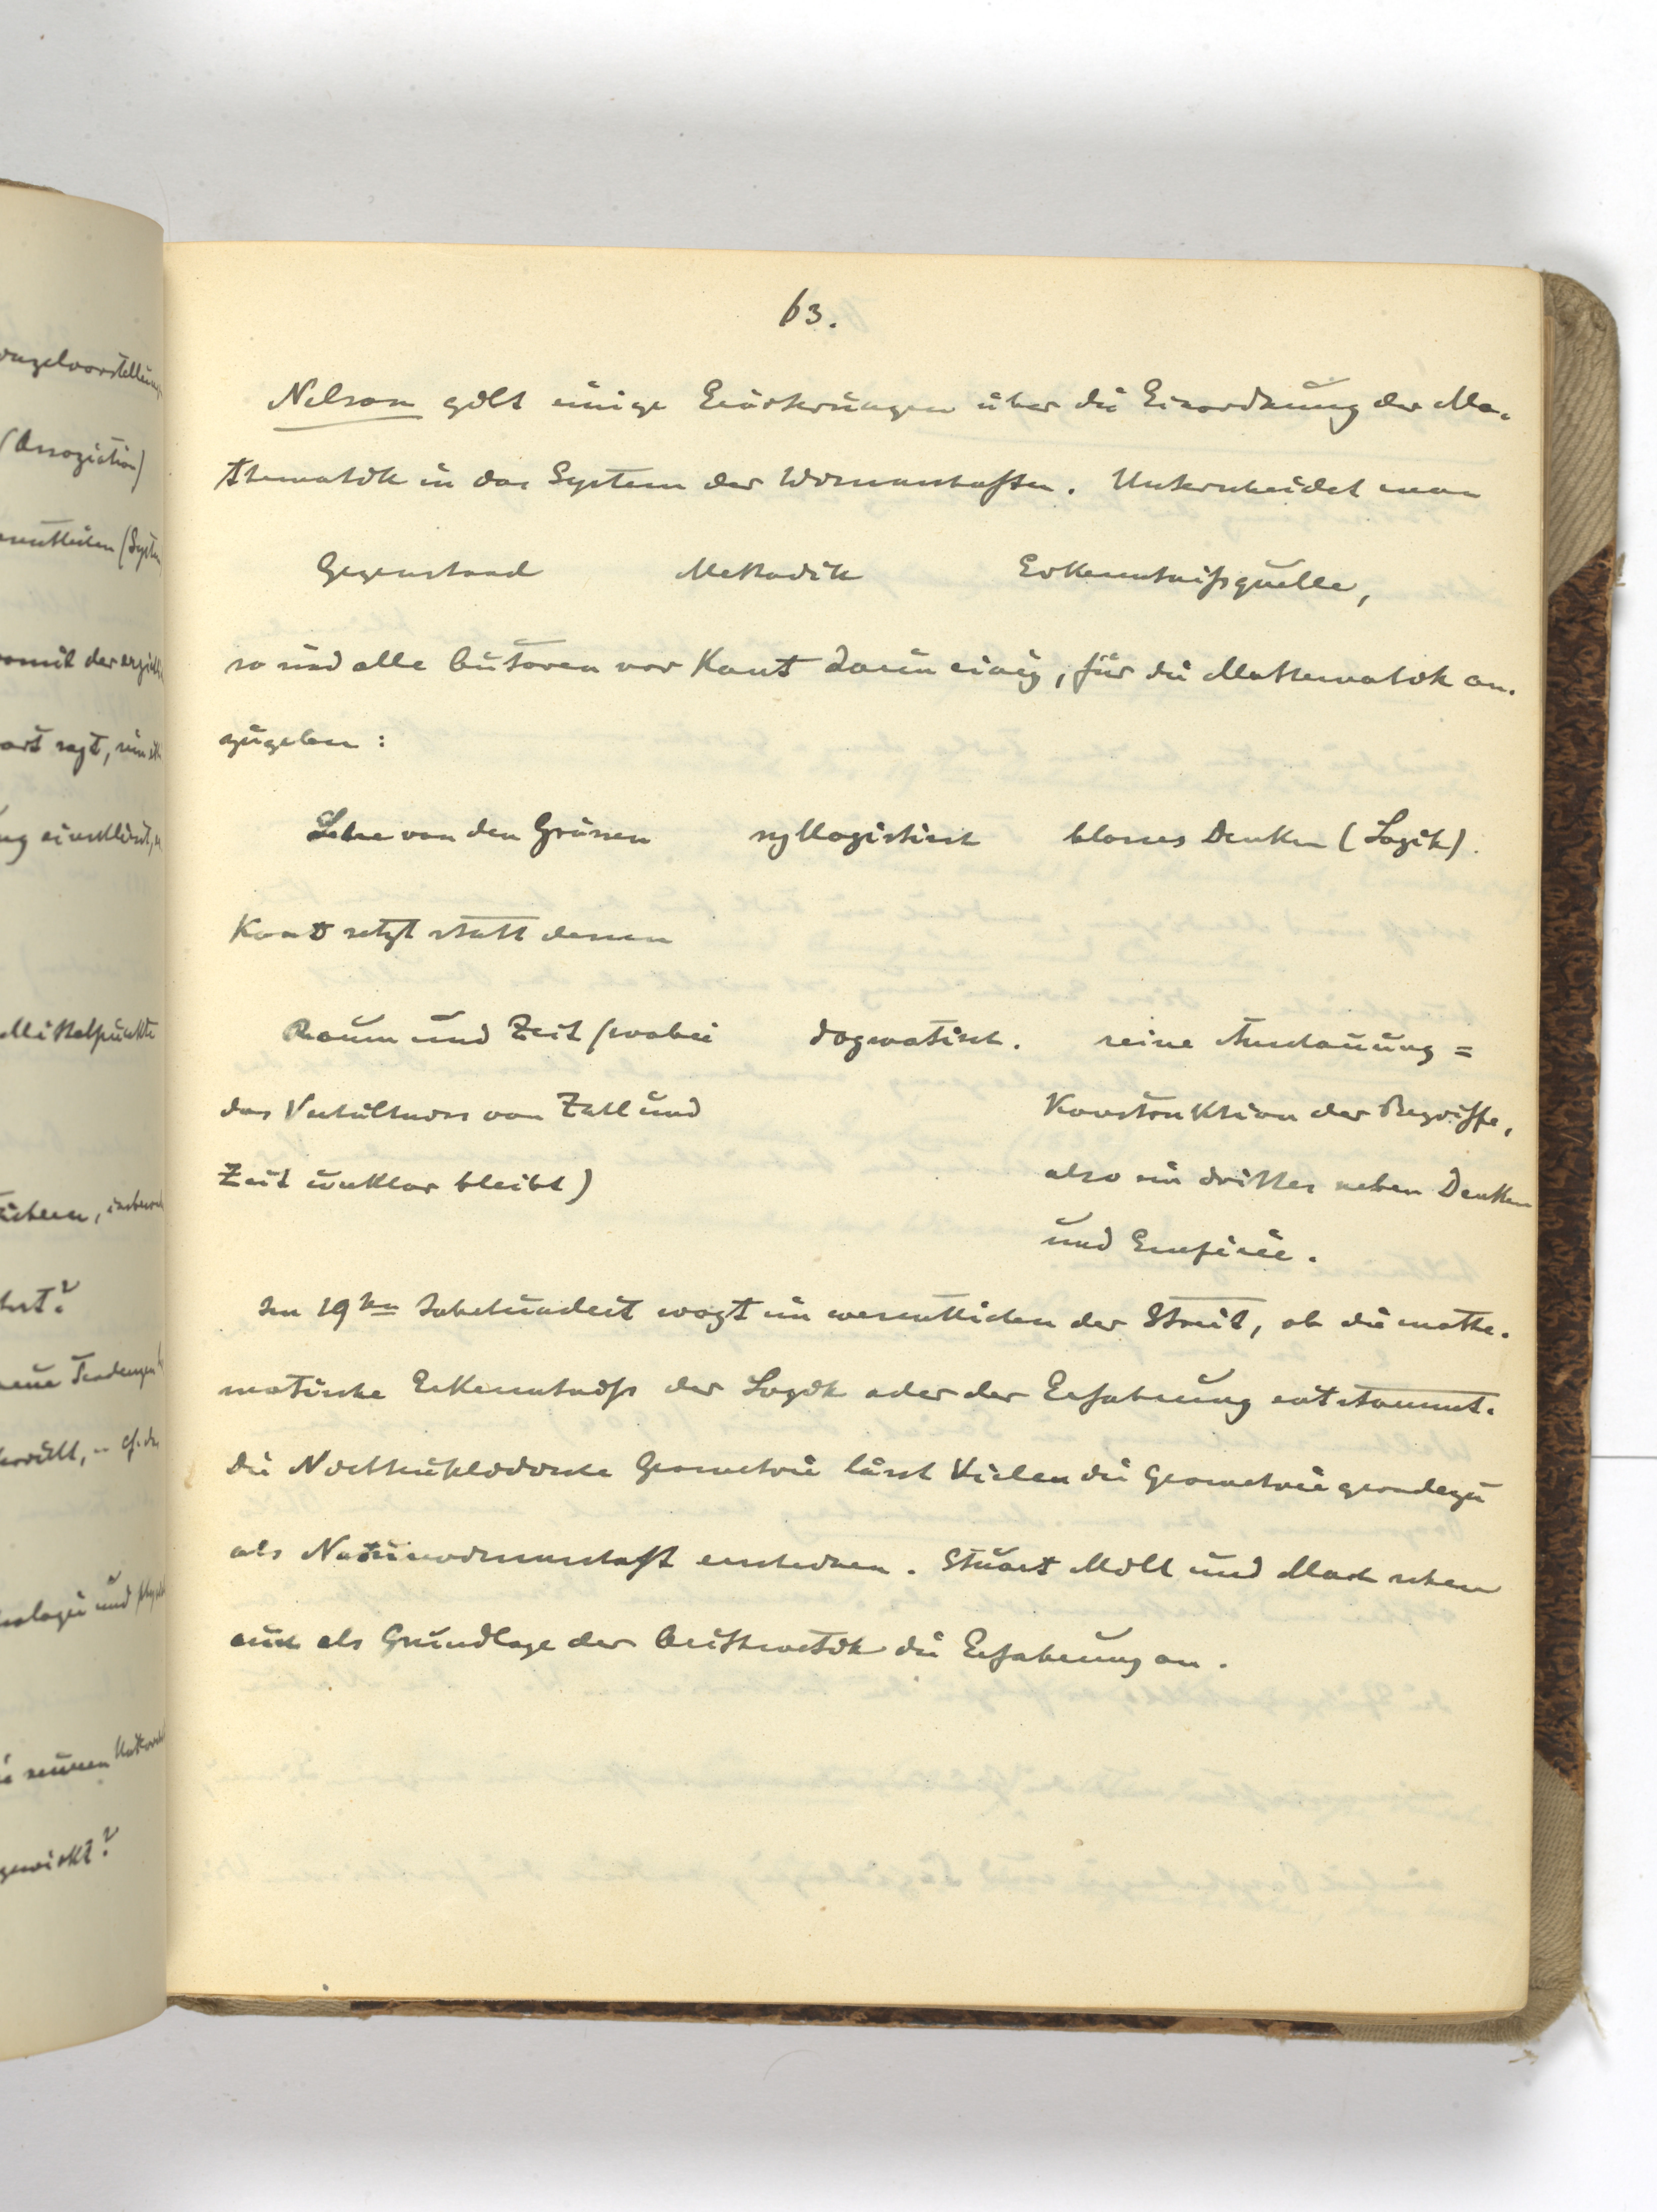 63.
Nelson gibt einige Erörterungen über die Einordnung der Ma-
thematik in das System der Wissenschaften. Unterscheidet man
Gegenstand Methodik Erkenntnißquelle,
so sind alle Autoren vor Kant darin einig, für die Mathematik an-
zugeben:
Lehre von den Grössen syllogistisch blosses Denken (Logik).
Kant setzt statt dessen
Raum und Zeit (wobei dogmatisch. reine Anschauung =
das Verhältniss von Zahl und Konstruktion der Begriffe,
Zeit unklar bleibt) also ein drittes neben Denken
und Empirie.
Im 19ten Jahrhundert wogt im wesentlichen der Streit, ob die mathe-
matische Erkenntniß der Logik oder der Erfahrung entstammt.
Die Nichteuklidische Geometrie lässt Vielen die Geometrie geradezu
als Naturwissenschaft erscheinen. Stuart Mill und Mach sehen
auch als Grundlage der Arithmetik die Erfahrung an.
(Assoziation)
somit der
art sagt,
Mittelpunkte
neue Tendenzen
und
gewirkt?